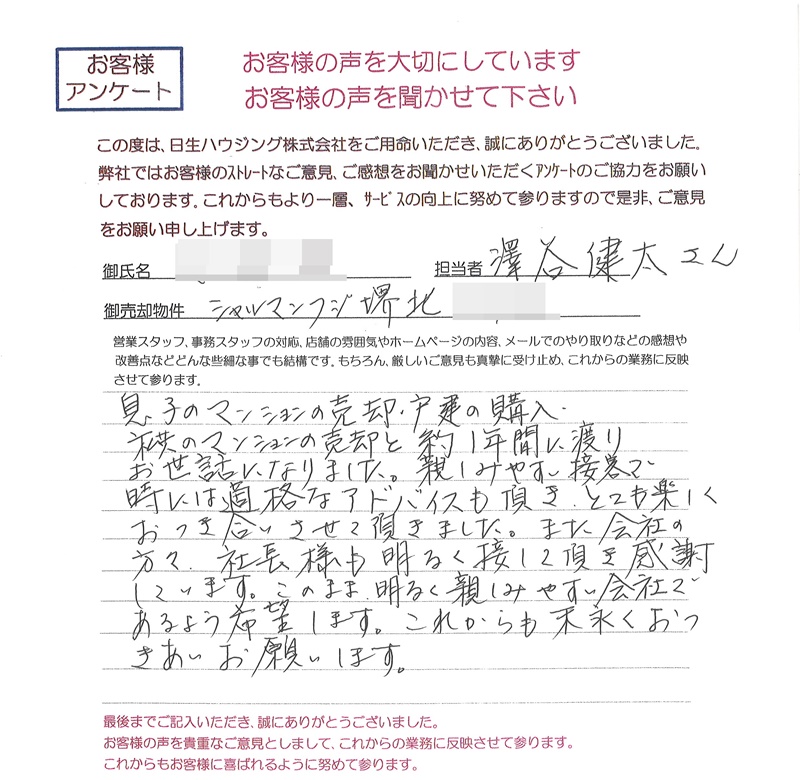 お客様
アンケート
お客様の声を大切にしています
お客様の声を聞かせて下さい
この度は、日生ハウジング株式会社をご用命いただき、誠にありがとうございました。
弊社ではお客様のｽﾄﾚｰﾄなご意見、ご感想をお聞かせいただくｱﾝｹｰﾄのご協力をお願い
しております。これからもより一層、ｻｰﾋﾞｽの向上に努めて参りますので是非、ご意見
をお願い申し上げます。
御氏名
担当者 澤谷健太さん
御売却物件 シャルマンフジ堺北
営業スタッフ、事務スタッフの対応、店舗の雰囲気やホームページの内容、メールでのやり取りなどの感想や
改善点などどんな些細な事でも結構です。もちろん、厳しいご意見も真摯に受け止め、これからの業務に反映
させて参ります。
息子のマンションの売却・戸建の購入・
私共のマンションの売却と約1年間に渡り
お世話になりました。親しみやすい接客で
時には適格なアドバイスも頂き、とても楽しく
おつき合いさせて頂きました。また会社の
方々、社長様も明るく接して頂き感謝
しています。このまま、明るく親しみやすい会社で
あるよう希望します。これからも末永くおつ
きあいお願いします。
最後までご記入いただき、誠にありがとうございました。
お客様の声を貴重なご意見としまして、これからの業務に反映させて参ります。
これからもお客様に喜ばれるように努めて参ります。